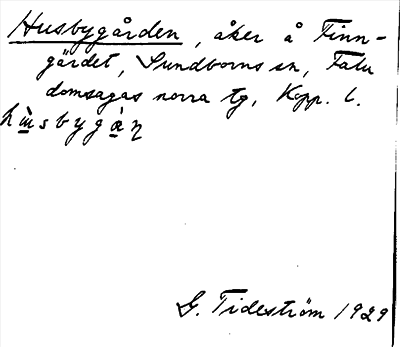 Husbygården, åker å Finn-
gärdet, Sundborns sn, Falu
domsagas norra tg, Kopp. l.
hùsbygàṇ
G. Tideström 1929